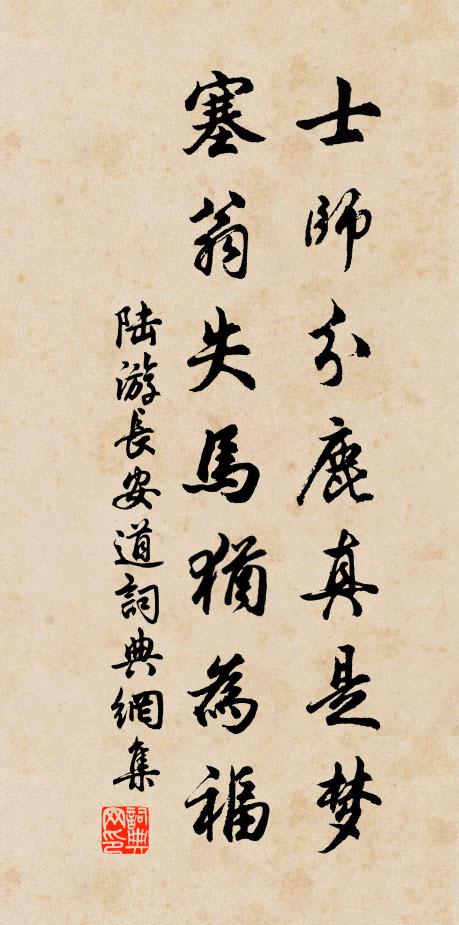 士師分鹿真是梦
塞翁失馬猶為福
陸游長安道詞典網集
詞典网印